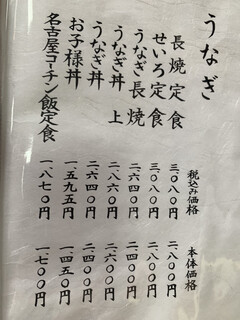 うなぎ
税込み価格 本体価格
長焼定食 三、〇八〇円 二、八〇〇円
せいろ定食 三、〇八〇円 二、八〇〇円
うなぎ長焼 二、六四〇円 二、四〇〇円
うなぎ丼 上 二、八六〇円 二、六〇〇円
うなぎ丼 二、六四〇円 二、四〇〇円
お子様丼 一、五九五円 一、四五〇円
名古屋コーチン飯定食 一、八七〇円 一、七〇〇円